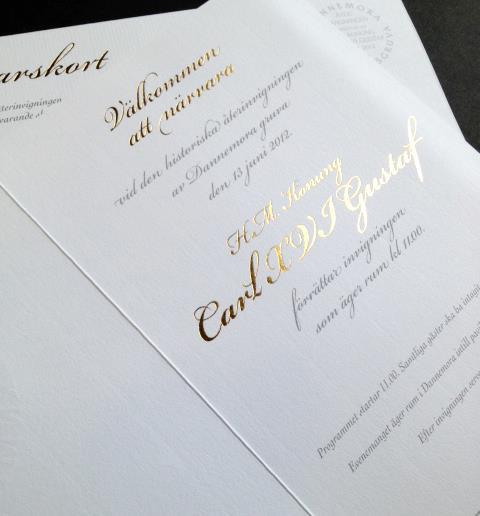 arskort
återinvigningen
varande
Välkommen
att närvara
vid den historiska återinvigningen
av Dannemora gruva
den 13 juni 2012.
H.M. Konung
Carl XVI Gustaf
förrättar invigningen
som äger rum kl 11.00.
Programmet startar 11.00. Samtliga gäster ska ha intagit
Evenemanget äger rum i Dannemora intill
Efter invigningen